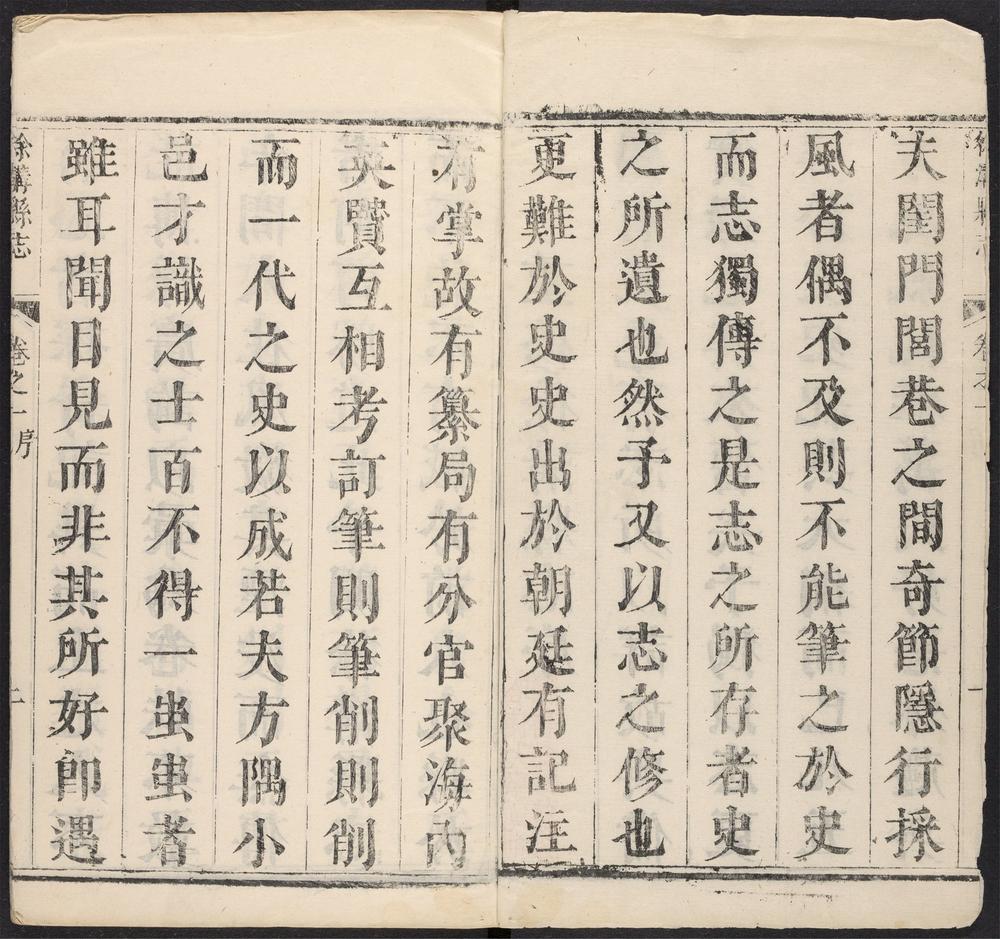 夫閨門閭巷之間奇節隱行採
風者偶不及則不能筆之於史
而志獨傳之是志之所存者史
之所遺也然予又以志之修也
更難於史史出於朝廷有記注
有掌故有纂局有分官聚海內
英賢互相考訂筆則筆削則削
而一代之史以成若夫方隅小
邑才識之士百不得一䖝䖝者
雖耳聞目見而非其所好卽遇
徐溝縣志
卷之一序
二